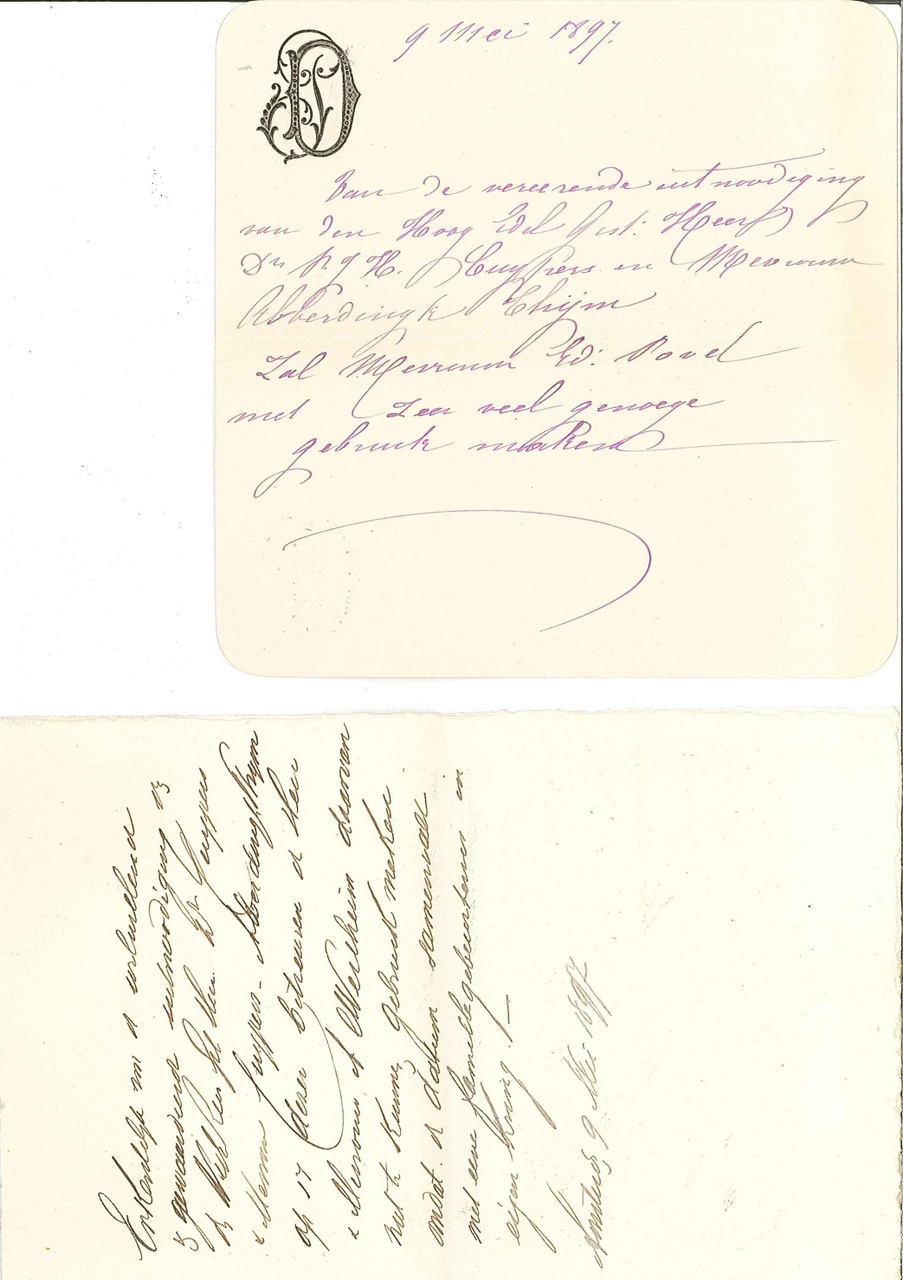 9 Mei 1897.
Van de vereerende uitnoodiging
van den Hoog Edel Gest: Heer
Dr P. J. H. Cuypers en Mevrouw
Alberdingk Thijm
Zal Mevrouw Ed: Povel
met zeer veel genoege
gebruik maken
Erkentelijk voor de
uitnoodiging
Heer Dr Cuypers
& Mevrouw Cuypers-Alberdingk Thijm
op 17 dezer betreuren de Heer
& Mevrouw Wertheim daarvan
niet te kunnen gebruik maken
omdat de datum samenvalt
met eene familiegebeurtenis in
eigen kring
Amsterd 9 Mei 1897